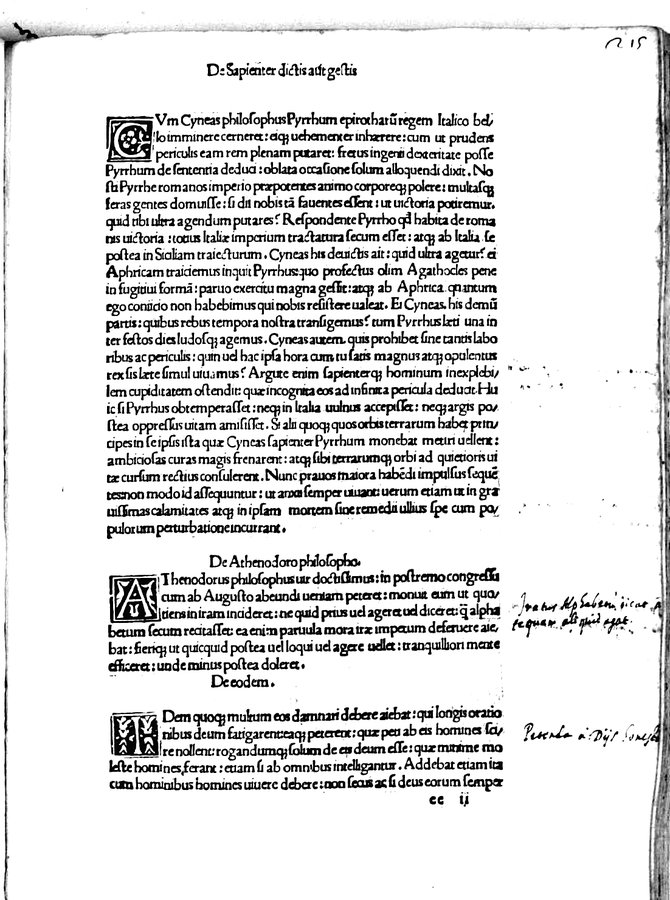 215
De Sapienter dictis aut gestis
CVm Cyneas philosophus Pyrrhum epirotharũ regem Italico bel/
lo imminere cerneret: eiq; uehementer inhærere: cum ut prudens
periculis eam rem plenam putaret: fretus ingenii dexteritate posse
Pyrrhum de sententia deduci: oblata occasione solum alloquendi dixit. No
sti Pyrrhe romanos imperio præpotentes animo corporeq; polere: multasq;
feras gentes domuisse: si dii nobis tã fauentes essent: ut uictoria potiremur.
quid tibi ultra agendum putares? Respondente Pyrrho qd habita de roma
nis uictoria: totius Italiæ imperium tractatura secum esset: atq; ab Italia se
postea in Siciliam traiecturum. Cyneas his deuictis ait: quid ultra agetur? ei
Aphricam traiciemus inquit Pyrrhus: quo profectus olim Agathocles pene
in fugitiui formã: paruo exercitu magna gessit: atq; ab Aphrica quantum
ego coniicio non habebimus qui nobis resistere ualeat. Ei Cyneas. his demũ
partis: quibus rebus tempora nostra transigemus? tum Pyrrhus læti una in
ter festos dies ludosq; agemus. Cyneas autem. quis prohibet sine tantis labo
ribus ac periculis: quin uel hac ipsa hora cum tu satis magnus atq; opulentus
rex sis læte simul uiuamus? Argute enim sapienterq; hominum inexplebi/
lem cupiditatem ostendit: quæ incognita eos ad infinita pericula deducit. Hu
ic si Pyrrhus obtemperasset: neq; in Italia uulnus accepisset: neq; argis po/
stea oppressus uitam amisisset. Si alii quoq; quos orbis terrarum habet prin/
cipes in se ipsis ista quæ Cyneas sapienter Pyrrhum monebat metiri uellent:
ambiciosas curas magis frenarent: atq; sibi terrarumq; orbi ad quietioris ui
tæ cursum rectius consulerent. Nunc prauos maiora habẽdi impulsus sequẽ
tes non modo id assequuntur: ut anxii semper uiuant: uerum etiam ut in gra
uissimas calamitates atq; in ipsam mortem sine remedii ullius spe cum po/
pulorum perturbatione incurrant.
De Athenodoro philosopho.
AThenodorus philosophus uir doctissimus: in postremo congressu
cum ab Augusto abeundi ueniam peteret: monuit eum ut quo/
tiens in iram incideret: ne quid prius uel ageret uel diceret: q̃ alpha
betum secum recitasset: ea enim paruula mora iræ impetum deferuere aie/
bat: fieriq; ut quicquid postea uel loqui uel agere uellet: tranquilliori mente
efficeret: unde minus postea doleret.
De eodem.
ITDem quoq; multum eos damnari debere aiebat: qui longis oratio
nibus deum fatigarent: eaq; peterent: quæ peti ab eis homines sci/
re nollent: rogandumq; solum de eis deum esse: quæ minime mo
leste homines ferant: etiam si ab omnibus intelligantur. Addebat etiam ita
cum hominibus homines uiuere debere: non secus ac si deus eorum semper
ee ii
Iratus Alphabetũ dicat
quam aliquid agat
Petenda a Dijs